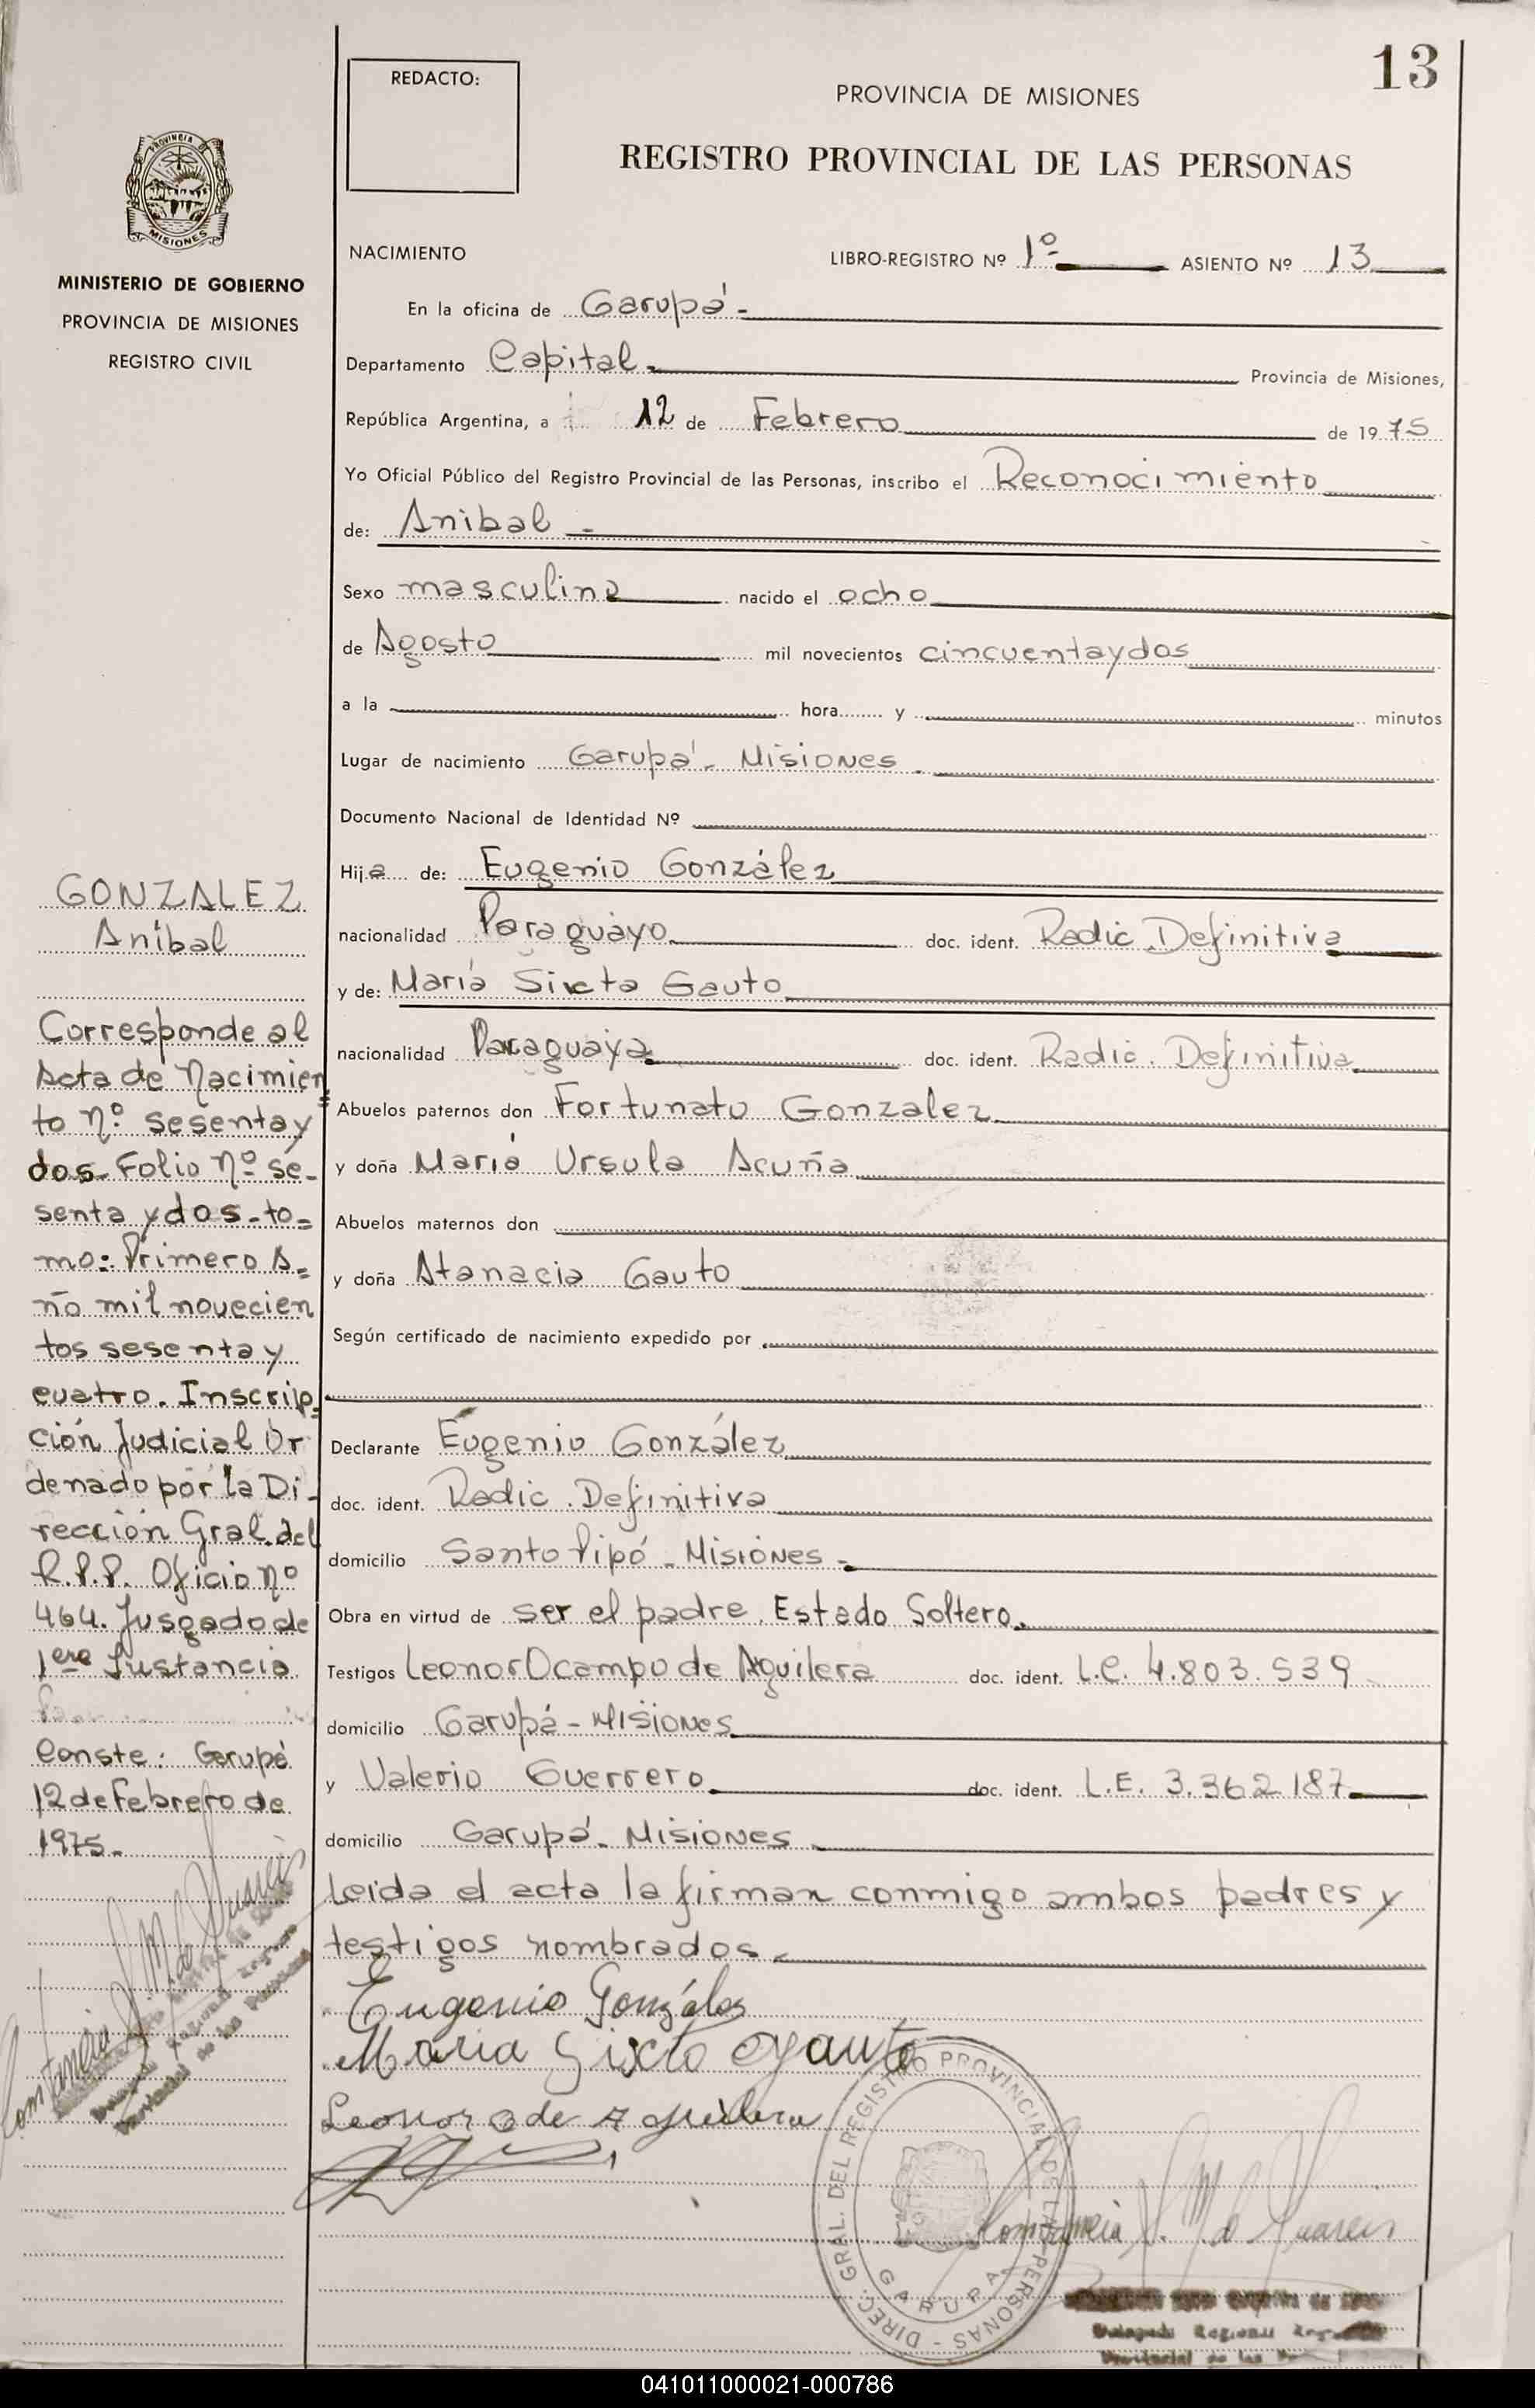 13
REDACTO:
PROVINCIA DE MISIONES
REGISTRO PROVINCIAL DE LAS PERSONAS
PROVINCIA DE
MISIONES
MINISTERIO DE GOBIERNO
PROVINCIA DE MISIONES
REGISTRO CIVIL
NACIMIENTO LIBRO-REGISTRO Nº 1º ASIENTO Nº 13
En la oficina de Garupá.-
Departamento Capital. Provincia de Misiones,
República Argentina, a 12 de Febrero de 1975
Yo Oficial Público del Registro Provincial de las Personas, inscribo el Reconocimiento
de: Anibal -
Sexo masculino nacido el ocho
de Agosto mil novecientos cincuentaydos
a la hora y minutos
Lugar de nacimiento Garupá - Misiones.
Documento Nacional de Identidad Nº
Hija de: Eugenio González
nacionalidad Paraguayo doc. ident. Radic. Definitiva
y de: María Sixta Gauto
nacionalidad Paraguaya doc. ident. Radic. Definitiva
Abuelos paternos don Fortunato Gonzalez
y doña María Ursula Acuña
Abuelos maternos don
y doña Atanacia Gauto
Según certificado de nacimiento expedido por
Declarante Eugenio González
doc. ident. Radic. Definitiva
domicilio Santo Pipó - Misiones.
Obra en virtud de ser el padre. Estado Soltero.
Testigos Leonor Ocampo de Aguilera doc. ident. L.C. 4.803.539
domicilio Garupá - Misiones
y Valerio Guerrero doc. ident. L.E. 3.362.187
domicilio Garupá - Misiones
Leida el acta la firman conmigo ambos padres y
testigos nombrados.
Eugenio González
Maria Sixta Gauto
Leonor O de Aguilera
GONZALEZ
Anibal
Corresponde al
Acta de Nacimien
to nº sesentay
dos. Folio nº se-
senta ydos - to=
mo: Primero A=
ño mil novecien
tos sesentay
cuatro. Inscrip=
ción Judicial Or
denado por la Di-
rección Gral. del
R.P.P. Oficio nº
464. Jusgado de
1era Sustancia
Conste: Garupá
12 de Febrero de
1975.-
DIREC. GRAL. DEL REGISTRO PROVINCIAL DE LAS PERSONAS -
GARUPA
041011000021-000786